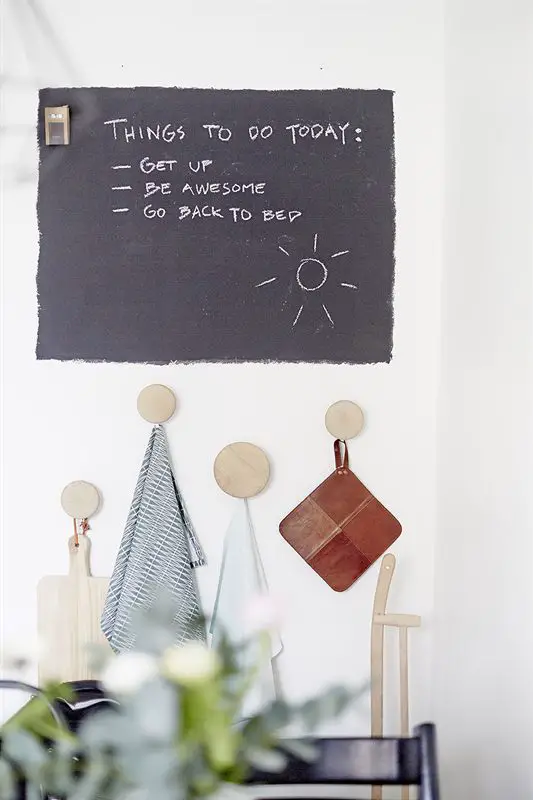 THINGS TO DO TODAY:
— GET UP
— BE AWESOME
— GO BACK TO BED